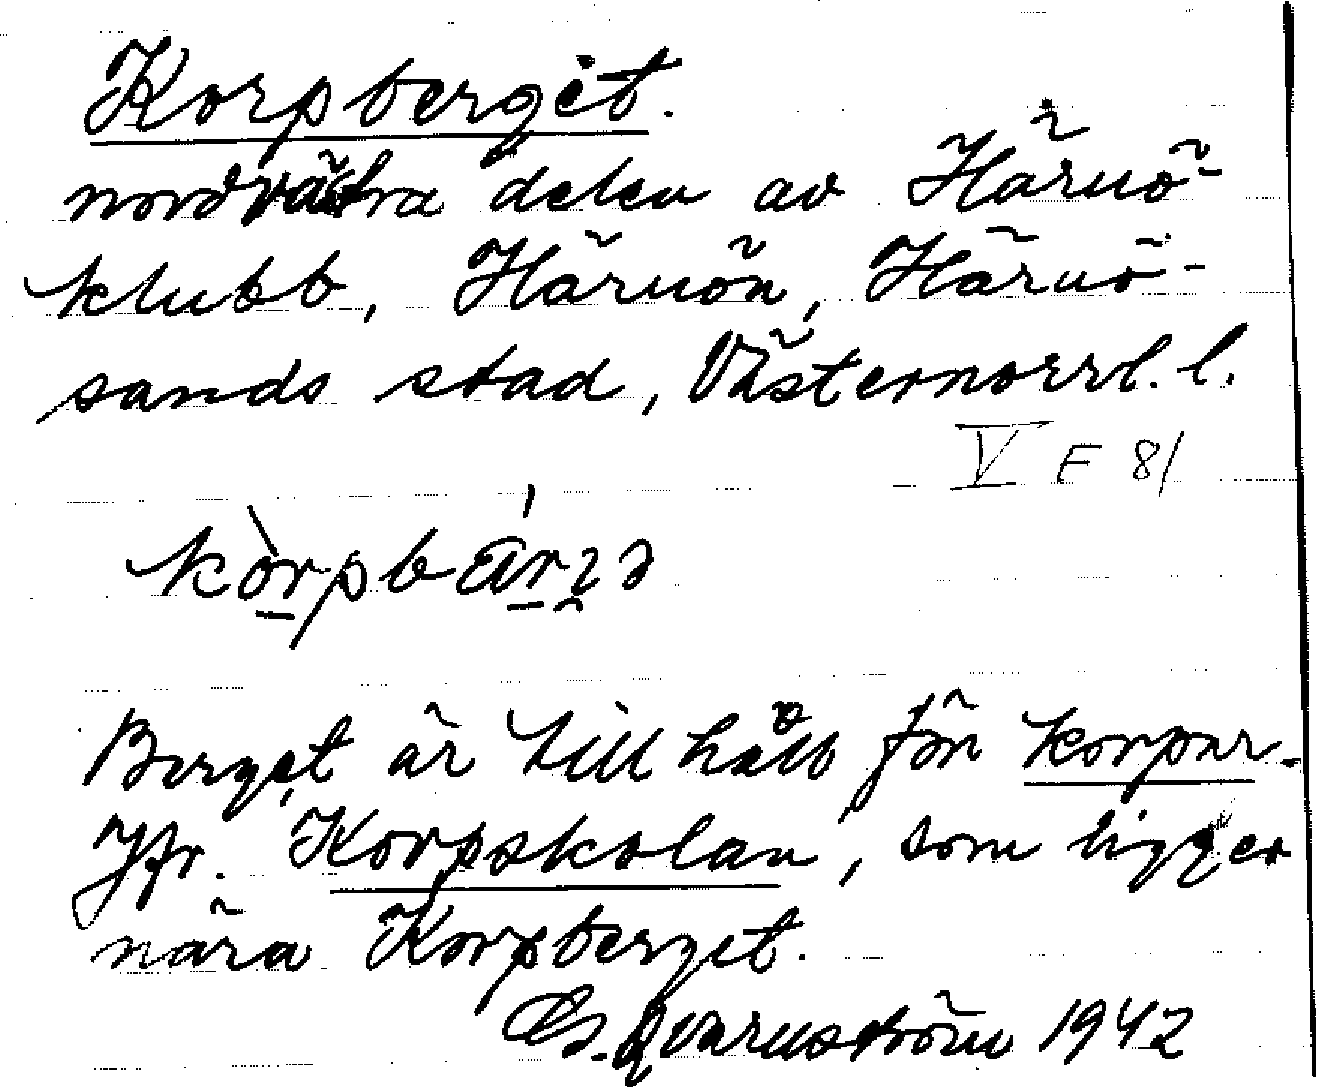 Korpberget.
nordvästra delen av Härnö-
klubb, Härnön, Härnö-
sands stad, Västernorrl. l.
V F 81
kòrpbä́rʒə
Berget är tillhåll för korpar.
Jfr. Korpskolan, som ligger
nära Korpberget.
Qvarnström 1942